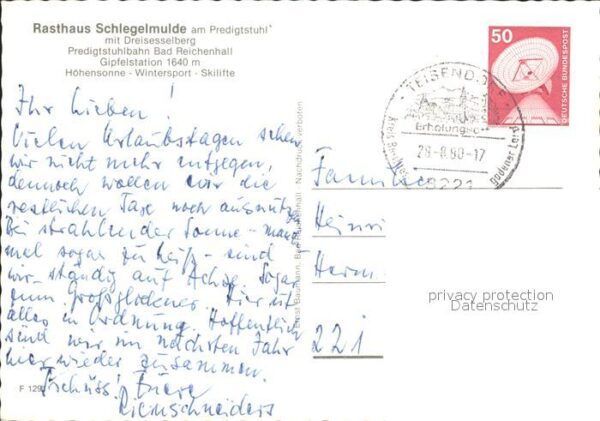 Rasthaus Schlegelmulde am Predigtstuhl
mit Dreisesselberg
Predigtstuhlbahn Bad Reichenhall
Gipfelstation 1640 m
Höhensonne - Wintersport - Skilifte
Ihr Lieben!
Vielen Urlaubstagen sehen
wir nicht mehr entgegen,
dennoch wollen wir die
restlichen Tage noch ausnutzen
Bei strahlender Sonne - manch
mal sogar zu heiß - sind
wir ständig auf Achse. Sogar
zum Großglockner. Hier ist
alles in Ordnung. Hoffentlich
sind wir im nächsten Jahr
hier wieder zusammen.
Tschüss! Euere
Riemschneiders
F 129
Nachdruck verboten
50
DEUTSCHE BUNDESPOST
TEISENDORF
Erholungs
29.-8.80-17
8221
Familie
Heinri
Herm
221
privacy protection
Datenschutz